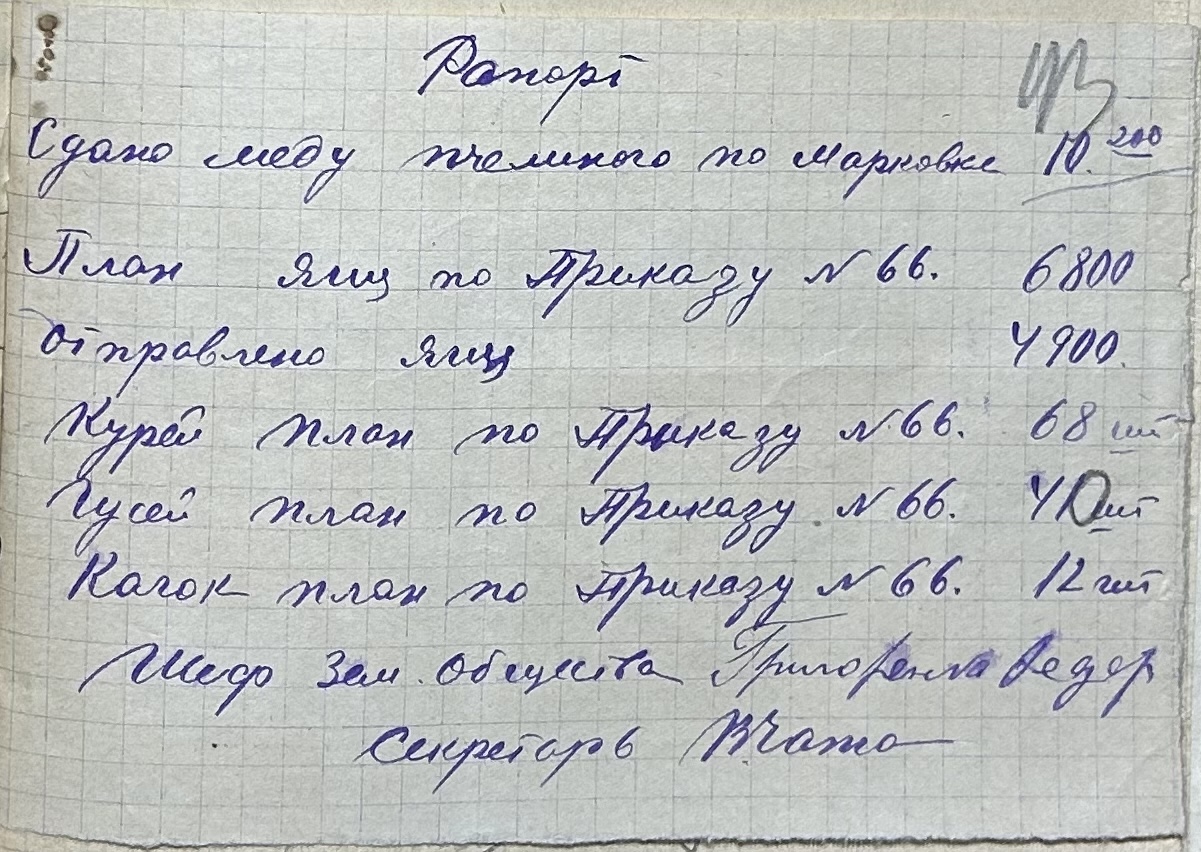 Рапорт
Сдано меду пчелиного по Марковке 10.200
План яиц по Приказу N 66. 6800
Отправлено яиц 4900.
Курей план по Приказу N 66. 68 шт
Гусей план по Приказу N 66. 40 шт
Качок план по Приказу N 66. 12 шт
Шеф Зем. Общества Григоренко Федор
Секретарь